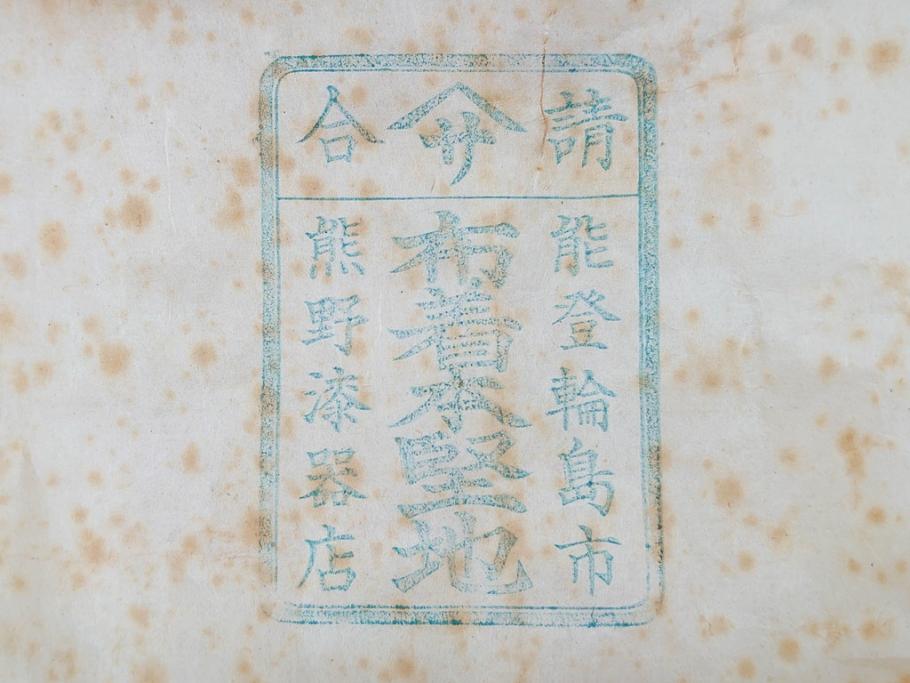 請 サ 合
能登輪島市
布着本堅地
熊野漆器店